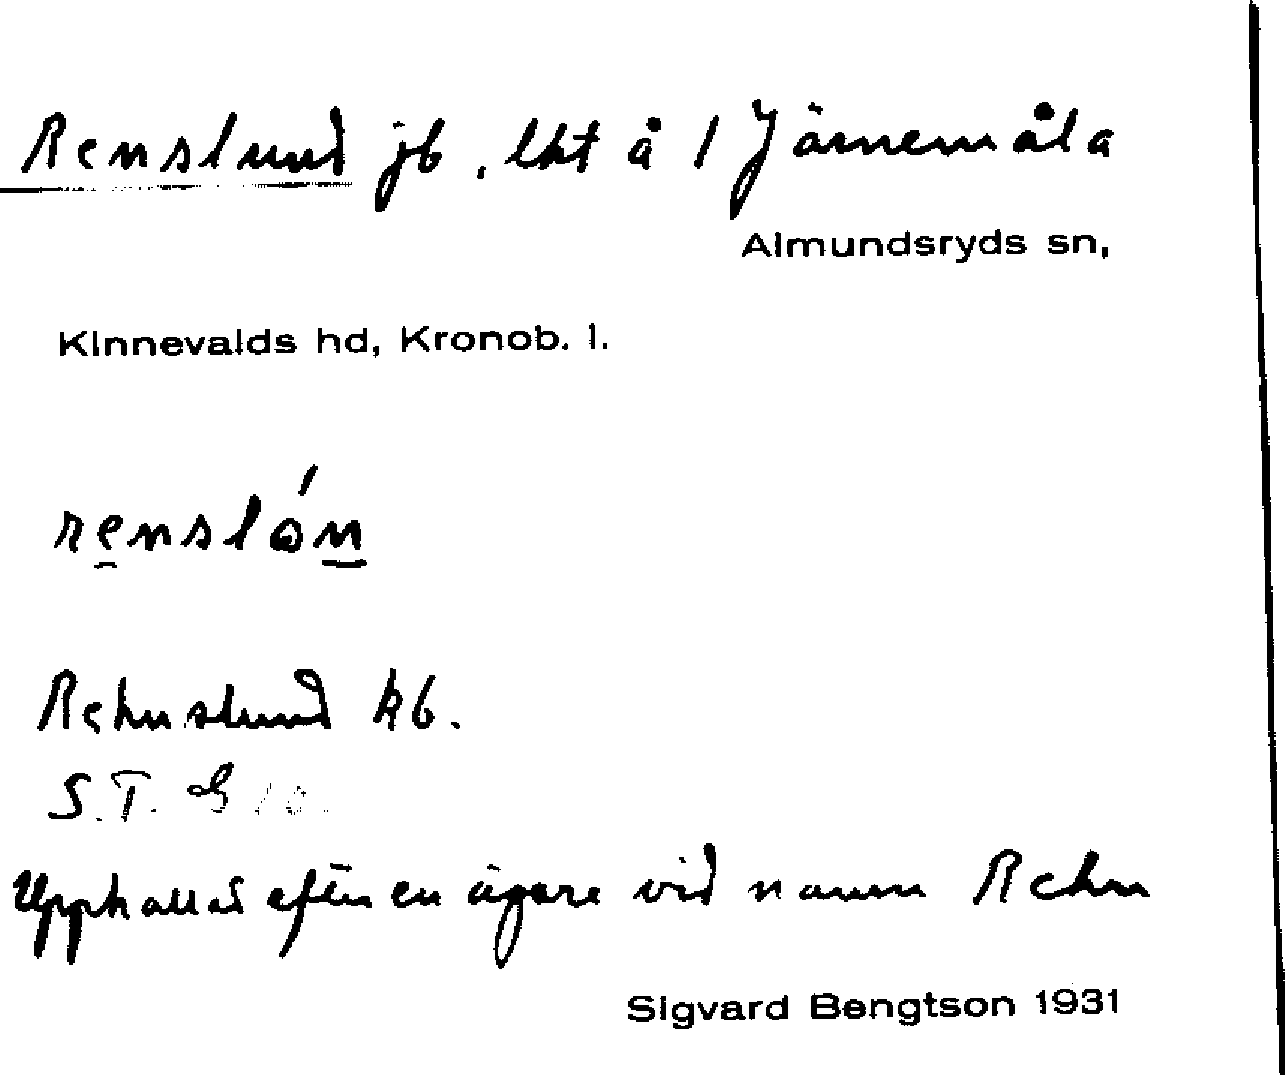 Renslund jb, lht å 1 Järnemåla
Almundsryds sn,
Kinnevalds hd, Kronob. l.
rensló̱n
Rehnslund kb.
S.T. G 10.
Uppkallad efter en ägare vid namn Rehn
Sigvard Bengtson 1931